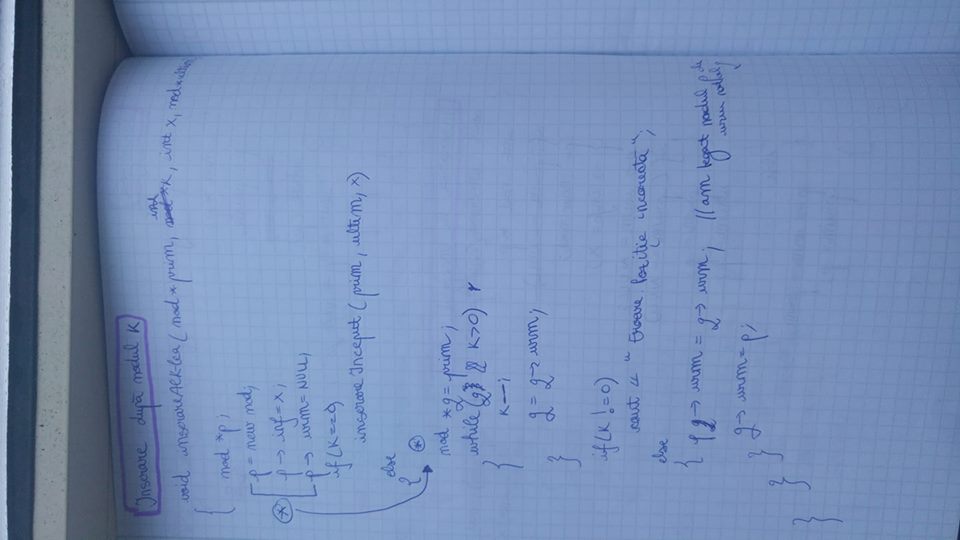 Inserare după nodul K
void inserareAlKlea(nod * prim, int K, int x, nod * ultim)
{
nod *p;
p = new nod;
p -> inf = x;
p -> urm = NULL;
if (K == 0)
inserare Inceput (prim, ultim, x)
else
{ *
nod *q = prim;
while (q && K>0)
{
K--;
q = q -> urm;
}
if (K != 0)
cout << "Eroare. Poziție incorectă";
else
{ p -> urm = q -> urm; // am legat nodul p de urm nodul;
q -> urm = p;
}
}
}